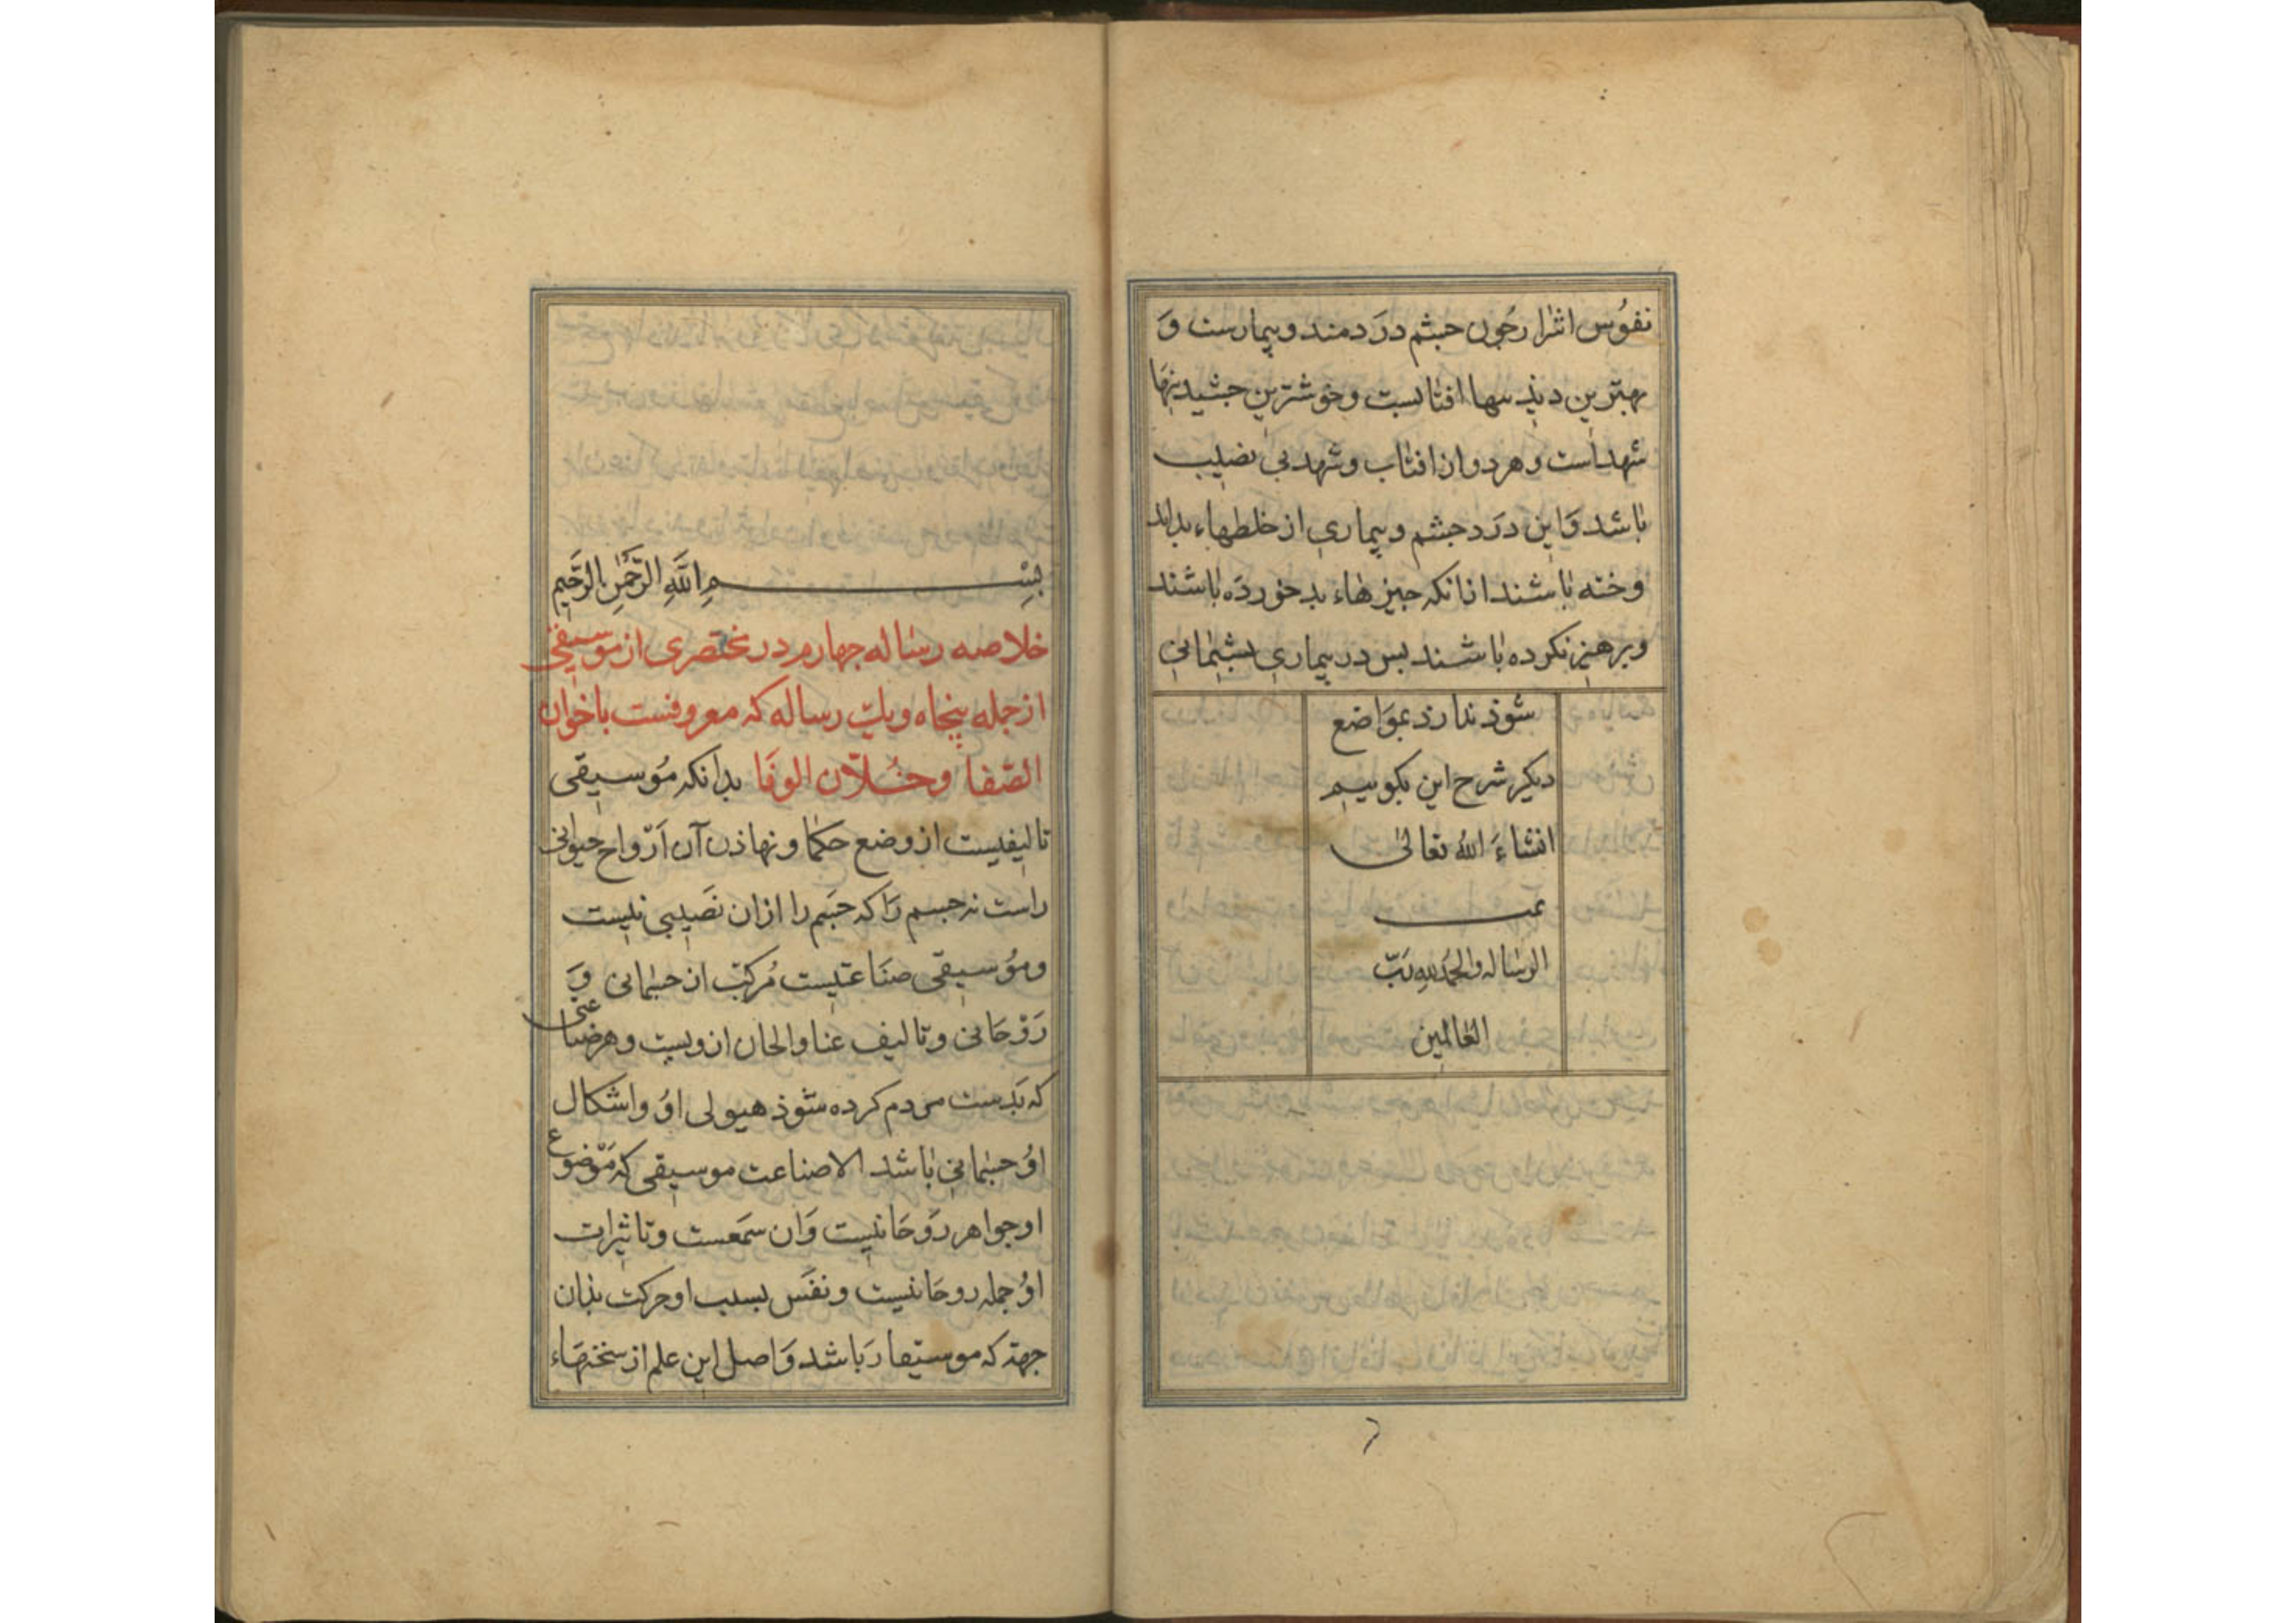 نفوُس اشرار جُون جشم درَدمند و بیمارست وَ
بهترین دیذنیها افتابست و خوشترین جشیدنیها
شهداست و هر دو از افتاب و شهد بی نصیب
باشد وَاین درَد جشم و بیماری از خلطهاء بداید
وخته باشند ازانکه جیزهاء بد خوردَه باشند
و برهیز نکرده باشند بس در بیماری بشیمانی
سُوذ ندارذ بموَاضع
دیکر شرح این بکوییم
انشاءَ الله تعالی
تمت
الرساله والحمدُ للهِ رَبّ
العَالمین
بِسْمِ اللَّهِ الرَّحْمٰنِ الرَّحَیمِ
خلاصه رساله جهارم در مختصری از موسیقی
از جمله پنجاه و یک رساله که معروفست باخوان
الصّفا وخُلاّن الوفَا بدانکه مُوسیقی
تالیفیست از وضع حکما و نهاذن آن اَرْواح حیوانی
راست نه جسم رَا که جَسم را ازان نَصیبی نیست
و مُوسیقی صنَاعتیست مُرکبّ از جسمانی وَ
رَوْحَانی و تالیف غنا والحان ازویست و هر صناعتی
که بَدست مردم کرده شوذ هیولی اوُ و اشکال
اوُ جسمانی باشد الا صناعت موسیقی که مَوْضوع
او جواهر رَوحَانیست وَان سَمَعست و تاثیرات
اوُ جمله روحَانیست و نفَس بسبب او حرکت بذان
جهة که موسیقار بَاشد وَ اصل این علم از سخنهَاء